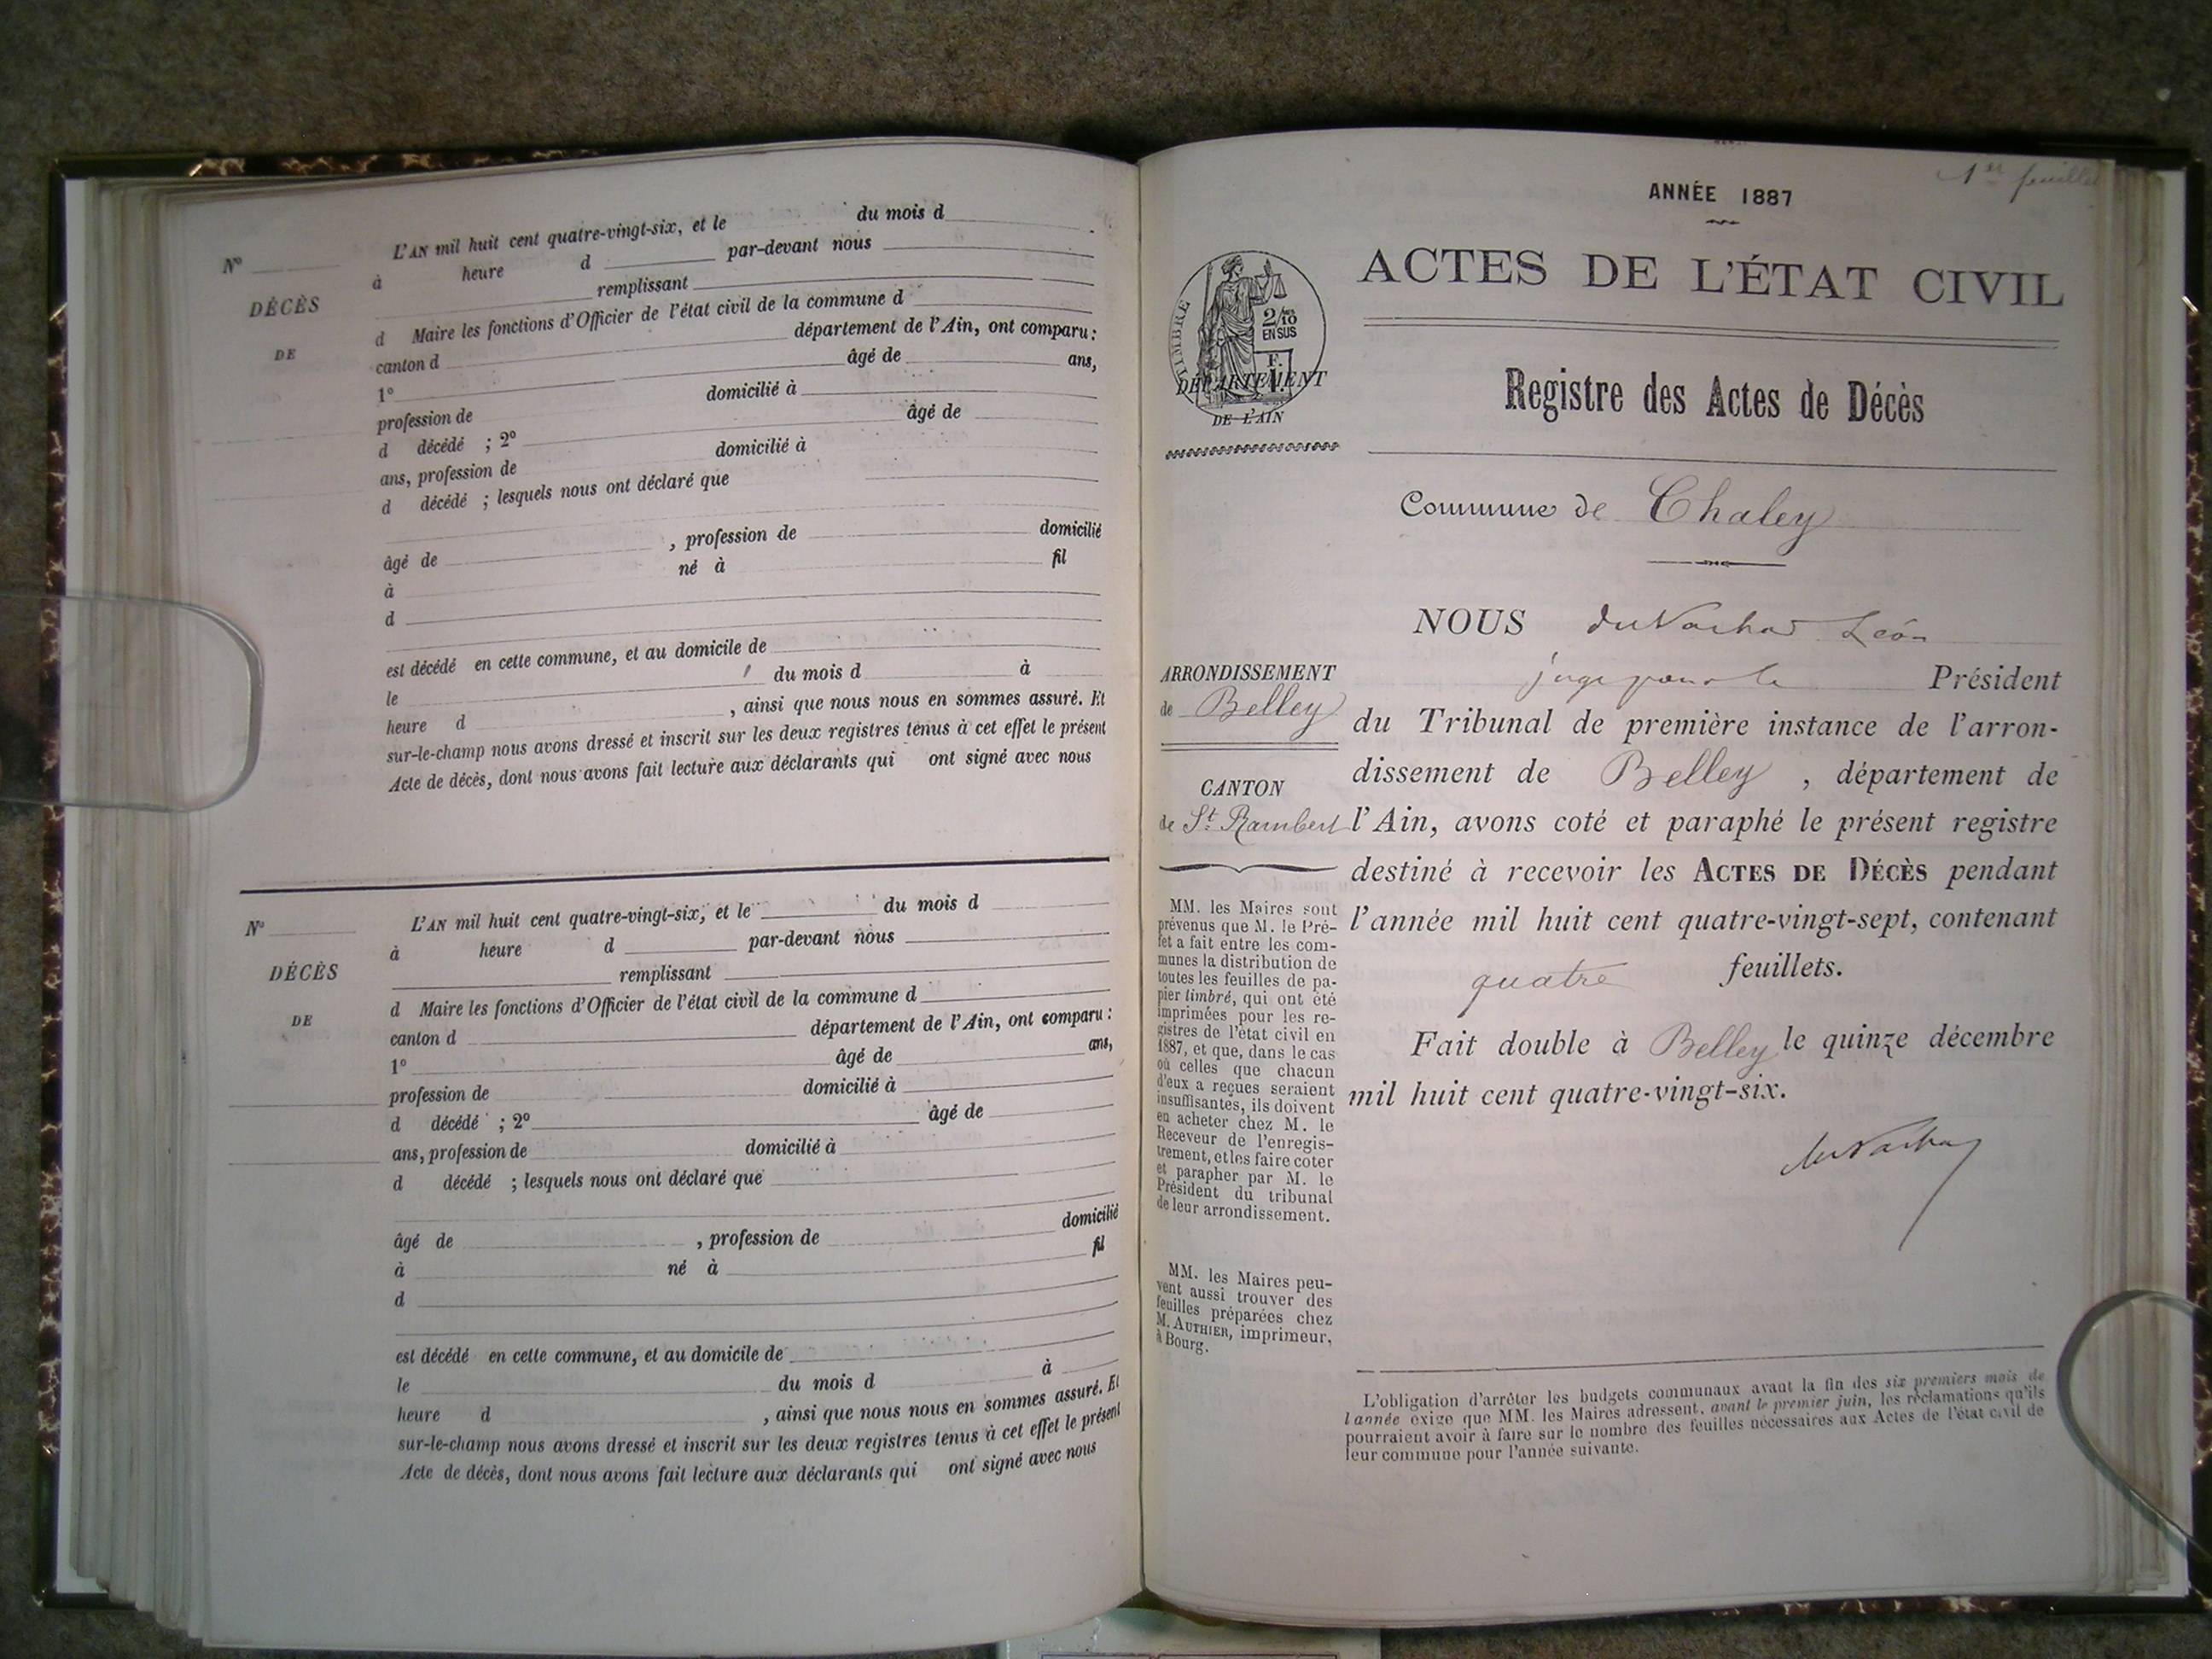 L'AN mil huit cent quatre-vingt-six, et le du mois d
N° à heure d par-devant nous
remplissant
DÉCÈS
d Maire les fonctions d'Officier de l'état civil de la commune d
DE
canton d département de l'Ain, ont comparu :
1° âgé de ans,
profession de domicilié à
d décédé ; 2° âgé de
ans, profession de domicilié à
d décédé ; lesquels nous ont déclaré que
âgé de , profession de domicilié
à né à fil
d
est décédé en cette commune, et au domicile de
le du mois d à
heure d , ainsi que nous nous en sommes assuré. Et
sur-le-champ nous avons dressé et inscrit sur les deux registres tenus à cet effet le présent
Acte de décès, dont nous avons fait lecture aux déclarants qui ont signé avec nous
N° L'AN mil huit cent quatre-vingt-six, et le du mois d
à heure d par-devant nous
DÉCÈS
remplissant
d Maire les fonctions d'Officier de l'état civil de la commune d
DE
canton d département de l'Ain, ont comparu :
1° âgé de ans,
profession de domicilié à
d décédé ; 2° âgé de
ans, profession de domicilié à
d décédé ; lesquels nous ont déclaré que
âgé de , profession de domicilié
à né à fil
d
est décédé en cette commune, et au domicile de
le du mois d à
heure d , ainsi que nous nous en sommes assuré. Et
sur-le-champ nous avons dressé et inscrit sur les deux registres tenus à cet effet le présent
Acte de décès, dont nous avons fait lecture aux déclarants qui ont signé avec nous
1er feuillet
ANNÉE 1887
ACTES DE L'ÉTAT CIVIL
TIMBRE
2/10
EN SUS
F.
DÉPARTEMENT
DE L'AIN
Registre des Actes de Décès
Commune de Chaley
NOUS Léon
juge pour le Président
du Tribunal de première instance de l'arron-
dissement de Belley , département de
l'Ain, avons coté et paraphé le présent registre
destiné à recevoir les ACTES DE DÉCÈS pendant
l'année mil huit cent quatre-vingt-sept, contenant
quatre feuillets.
Fait double à Belley le quinze décembre
mil huit cent quatre-vingt-six.
ARRONDISSEMENT
de Belley
CANTON
de St. Rambert
MM. les Maires sont
prévenus que M. le Pré-
fet a fait entre les com-
munes la distribution de
toutes les feuilles de pa-
pier timbré, qui ont été
imprimées pour les re-
gistres de l'état civil en
1887, et que, dans le cas
où celles que chacun
d'eux a reçues seraient
insuffisantes, ils doivent
en acheter chez M. le
Receveur de l'enregis-
trement, et les faire coter
et parapher par M. le
Président du tribunal
de leur arrondissement.
MM. les Maires peu-
vent aussi trouver des
feuilles préparées chez
M. AUTHIER, imprimeur,
à Bourg.
L'obligation d'arrêter les budgets communaux avant la fin des six premiers mois de
l'année exige que MM. les Maires adressent, avant le premier juin, les réclamations qu'ils
pourraient avoir à faire sur le nombre des feuilles nécessaires aux Actes de l'état civil de
leur commune pour l'année suivante.